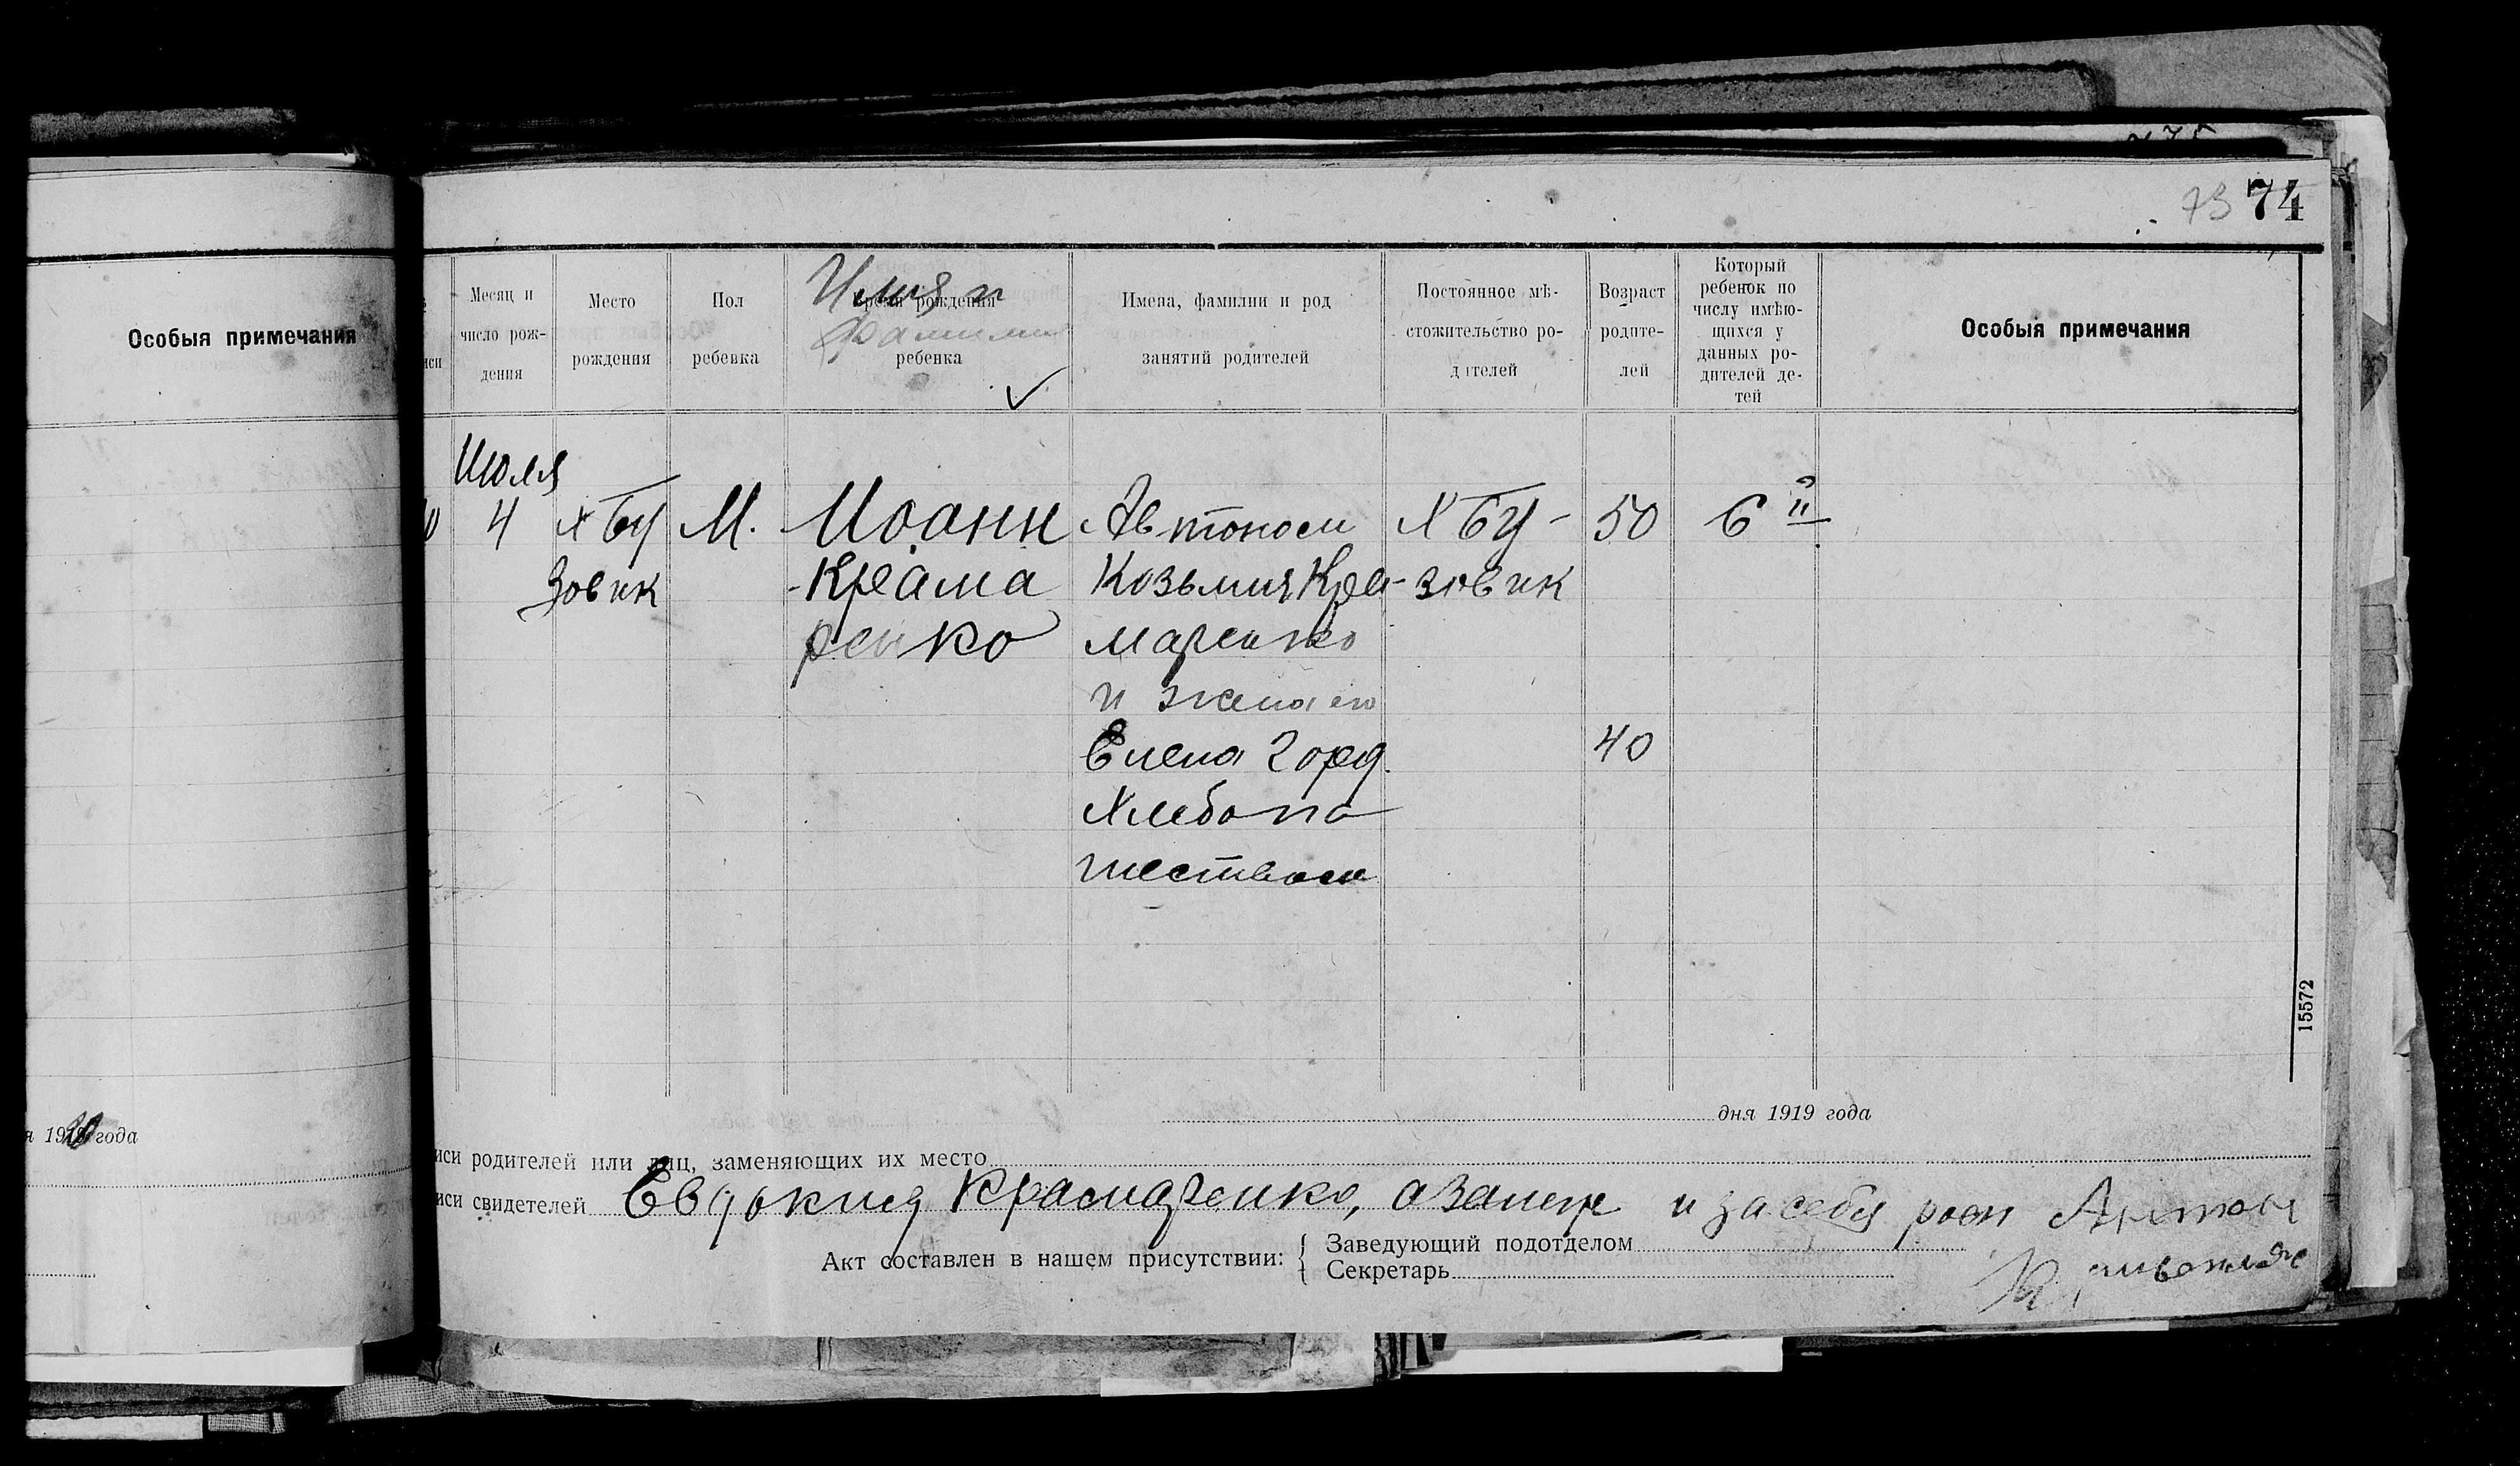 73 74
Особыя примечания
Месяц и число рождения
Место рождения
Пол ребенка
Имя и
Время рождения
фамилия
ребенка
Имена, фамилии и род занятий родителей
Постоянное мѣстожительство родителей
Возраст родителей
Который ребенок по числу имѣющихся у данных родителей детей
Особыя примечания
Июля
4 х Бу М. Иоанн Автоном х Бу- 50 6й
зовик Крама Козьмич Кра- зовик
ренко маренко
и жена его
Елена Горд. 40
Хлебопа
шеством
15572
дня 1919 года
года
родителей или лиц, заменяющих их место
свидетелей Евдокия Крамаренко, а за нее и за себя росп Антон
Акт составлен в нашем присутствии:
Заведующий подотделом
Секретарь